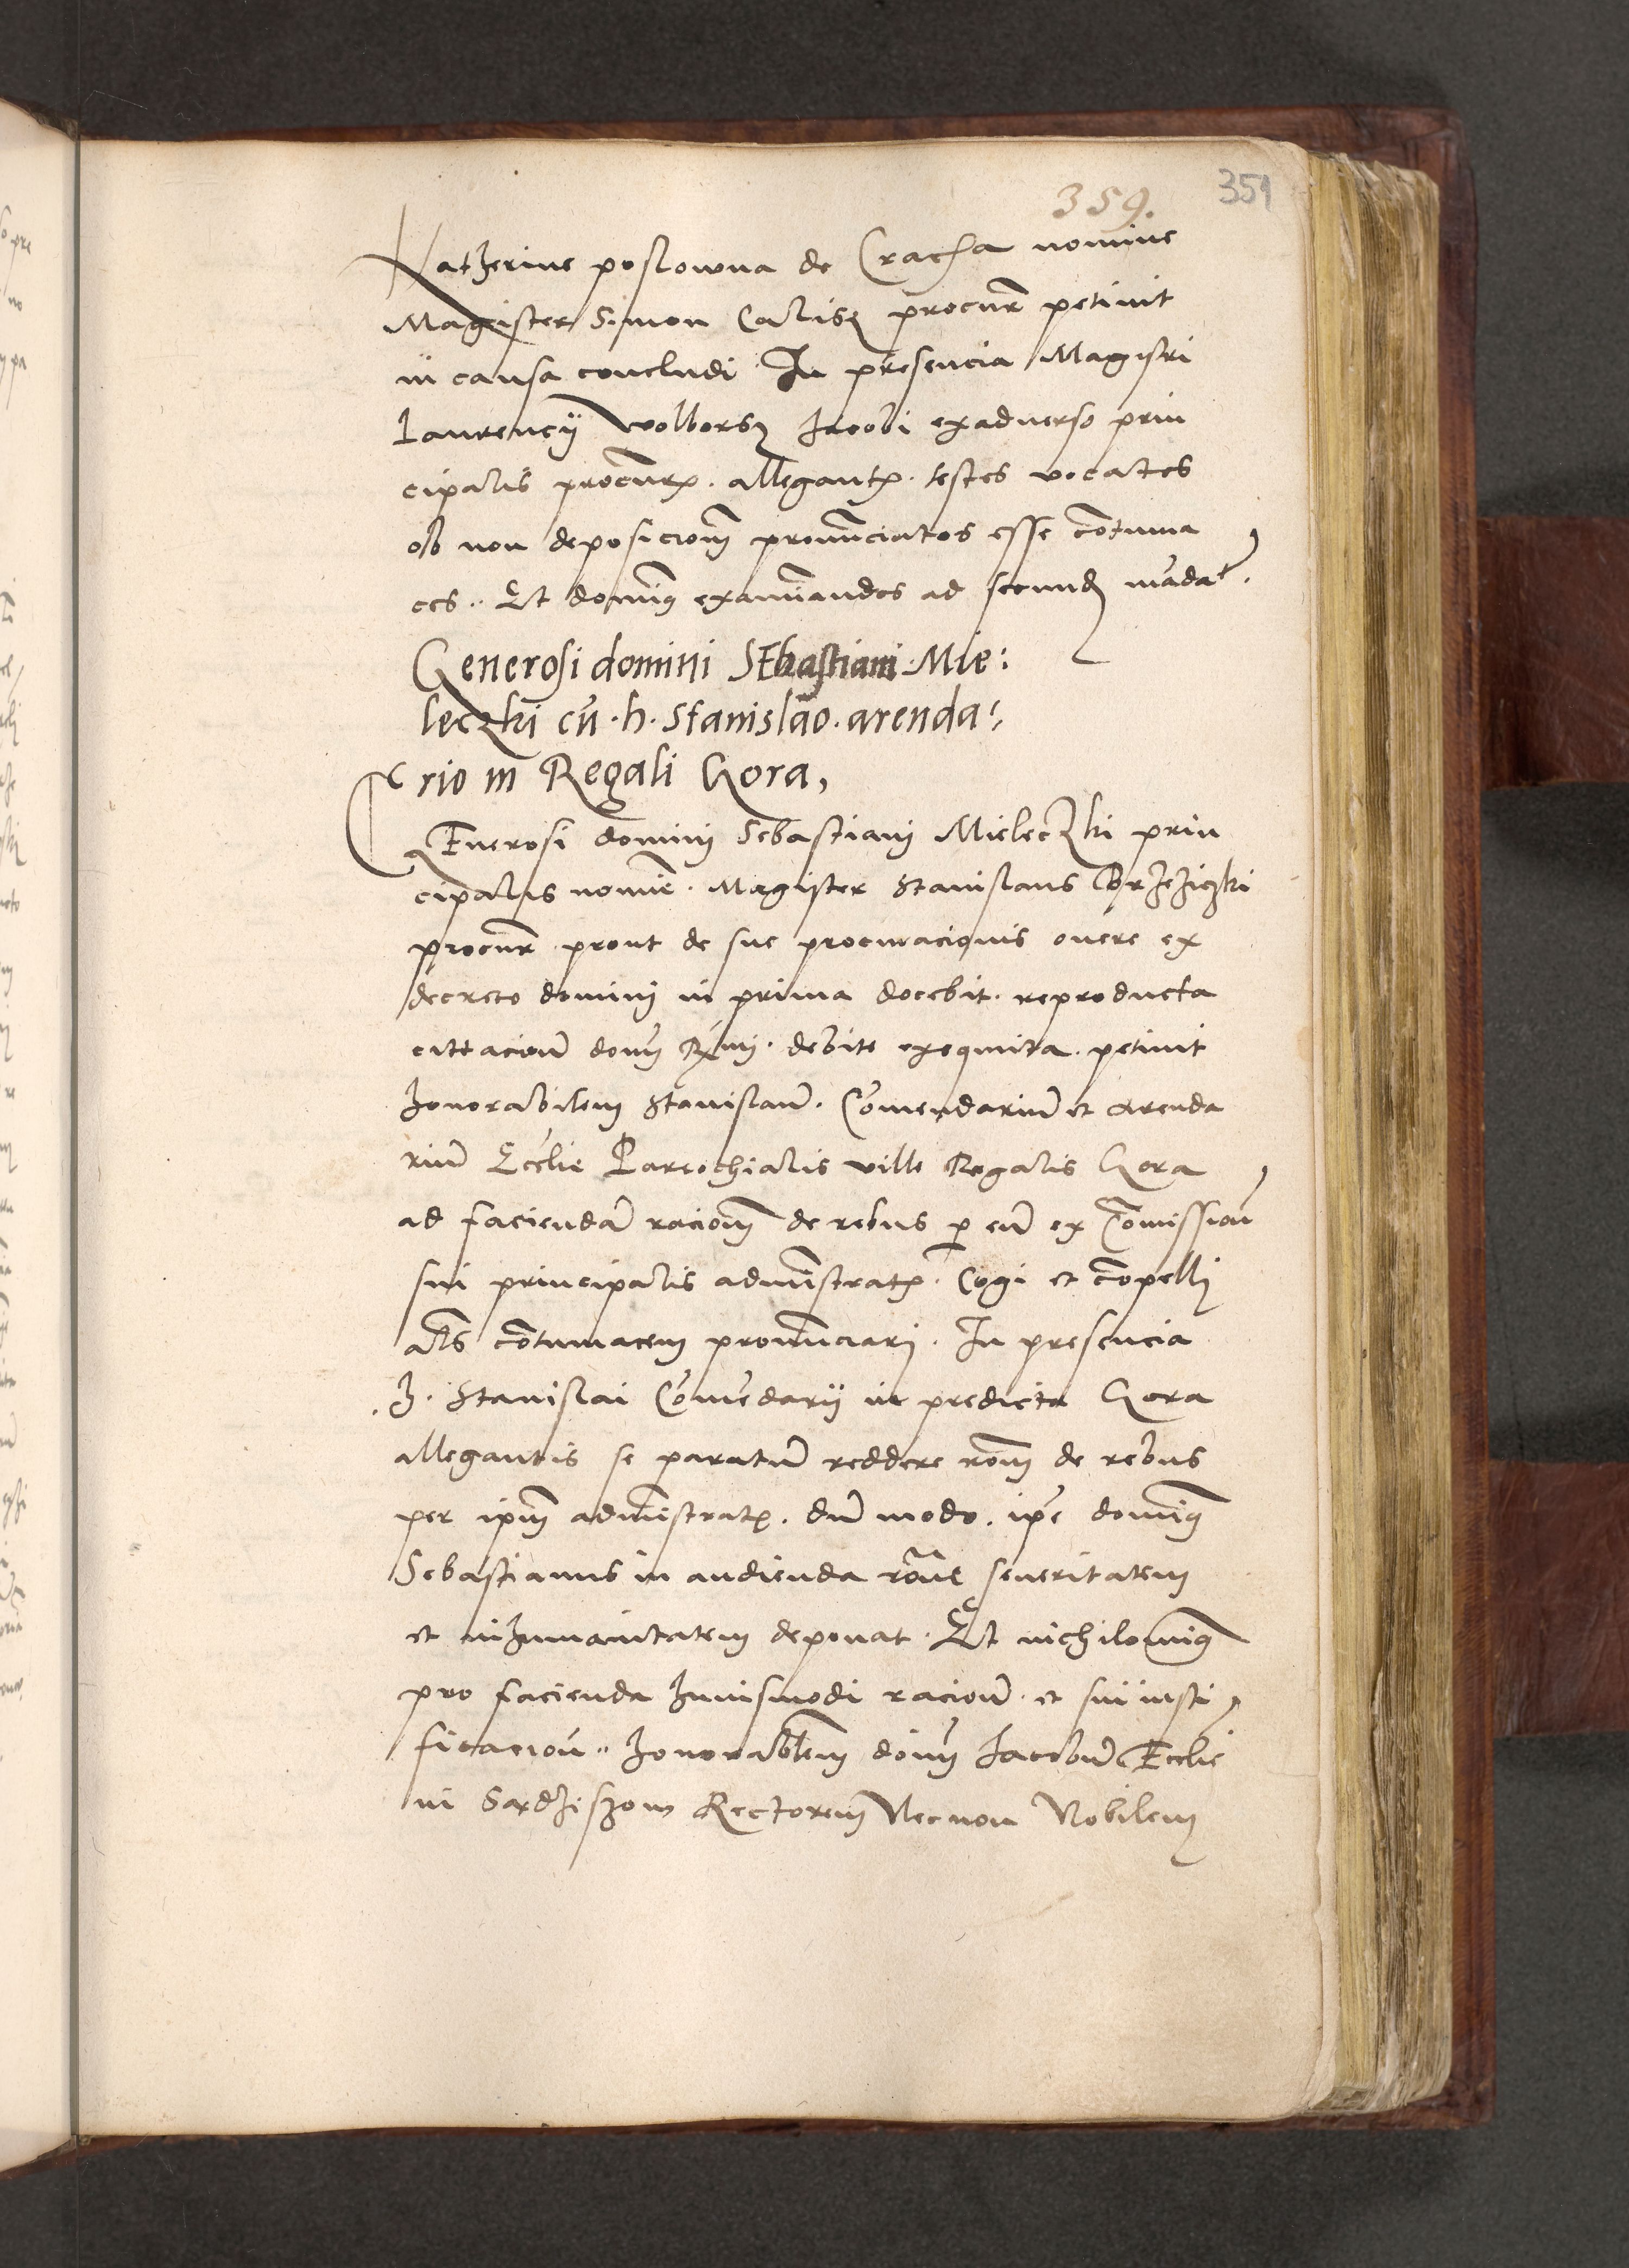 359.
351
Katherine poslowna de Cracha nomine
Magister Simon Calisz procur petiuit
in causa concludi In presencia Magistri
Laurencÿ Wolborsz Jacobi exaduerso prin
cipalis procur. allegantis. testes vocatos
ob non deposicionem pronunciatos esse contuma
ces. Et dominus examinandos ad secundam mandat.
Generosi domini SEbastiani Mie:
leczki cū h. Stanislao arenda:
rio in Regali Gora,
GEnerosi domini Sebastiani Mieleczki prin
cipalis nomīe. Magister Stanislaus Brzeziczki
procur prout de sue procuracionis onere ex
decreto domini in prima docebit. reproducta
citacioē domini debite exequuta petiuit
honorabilem Stanislaū. Comendariū et arenda
riū Ecclie Parrochialis ville Regalis Gora
ad faciendā racionem de rebus p eū ex Comissione
sui principalis administratis. Cogi et compelli
als contumacem pronunciari. In presencia
h. Stanislai Comendarÿ in predicta Gora
allegantis se paratū reddere ronem de rebus
per ipm administratis. dū modo. ipse dominus
Sebastianus in audienda rone seueritatem
et inhumanitatem deponat. Et nichilominus
pro facienda huiusmodi racione et sui iusti
ficacione honorabilem dominum Jacobū Ecclie
in Sardziszow Rectorem Necnon Nobilem